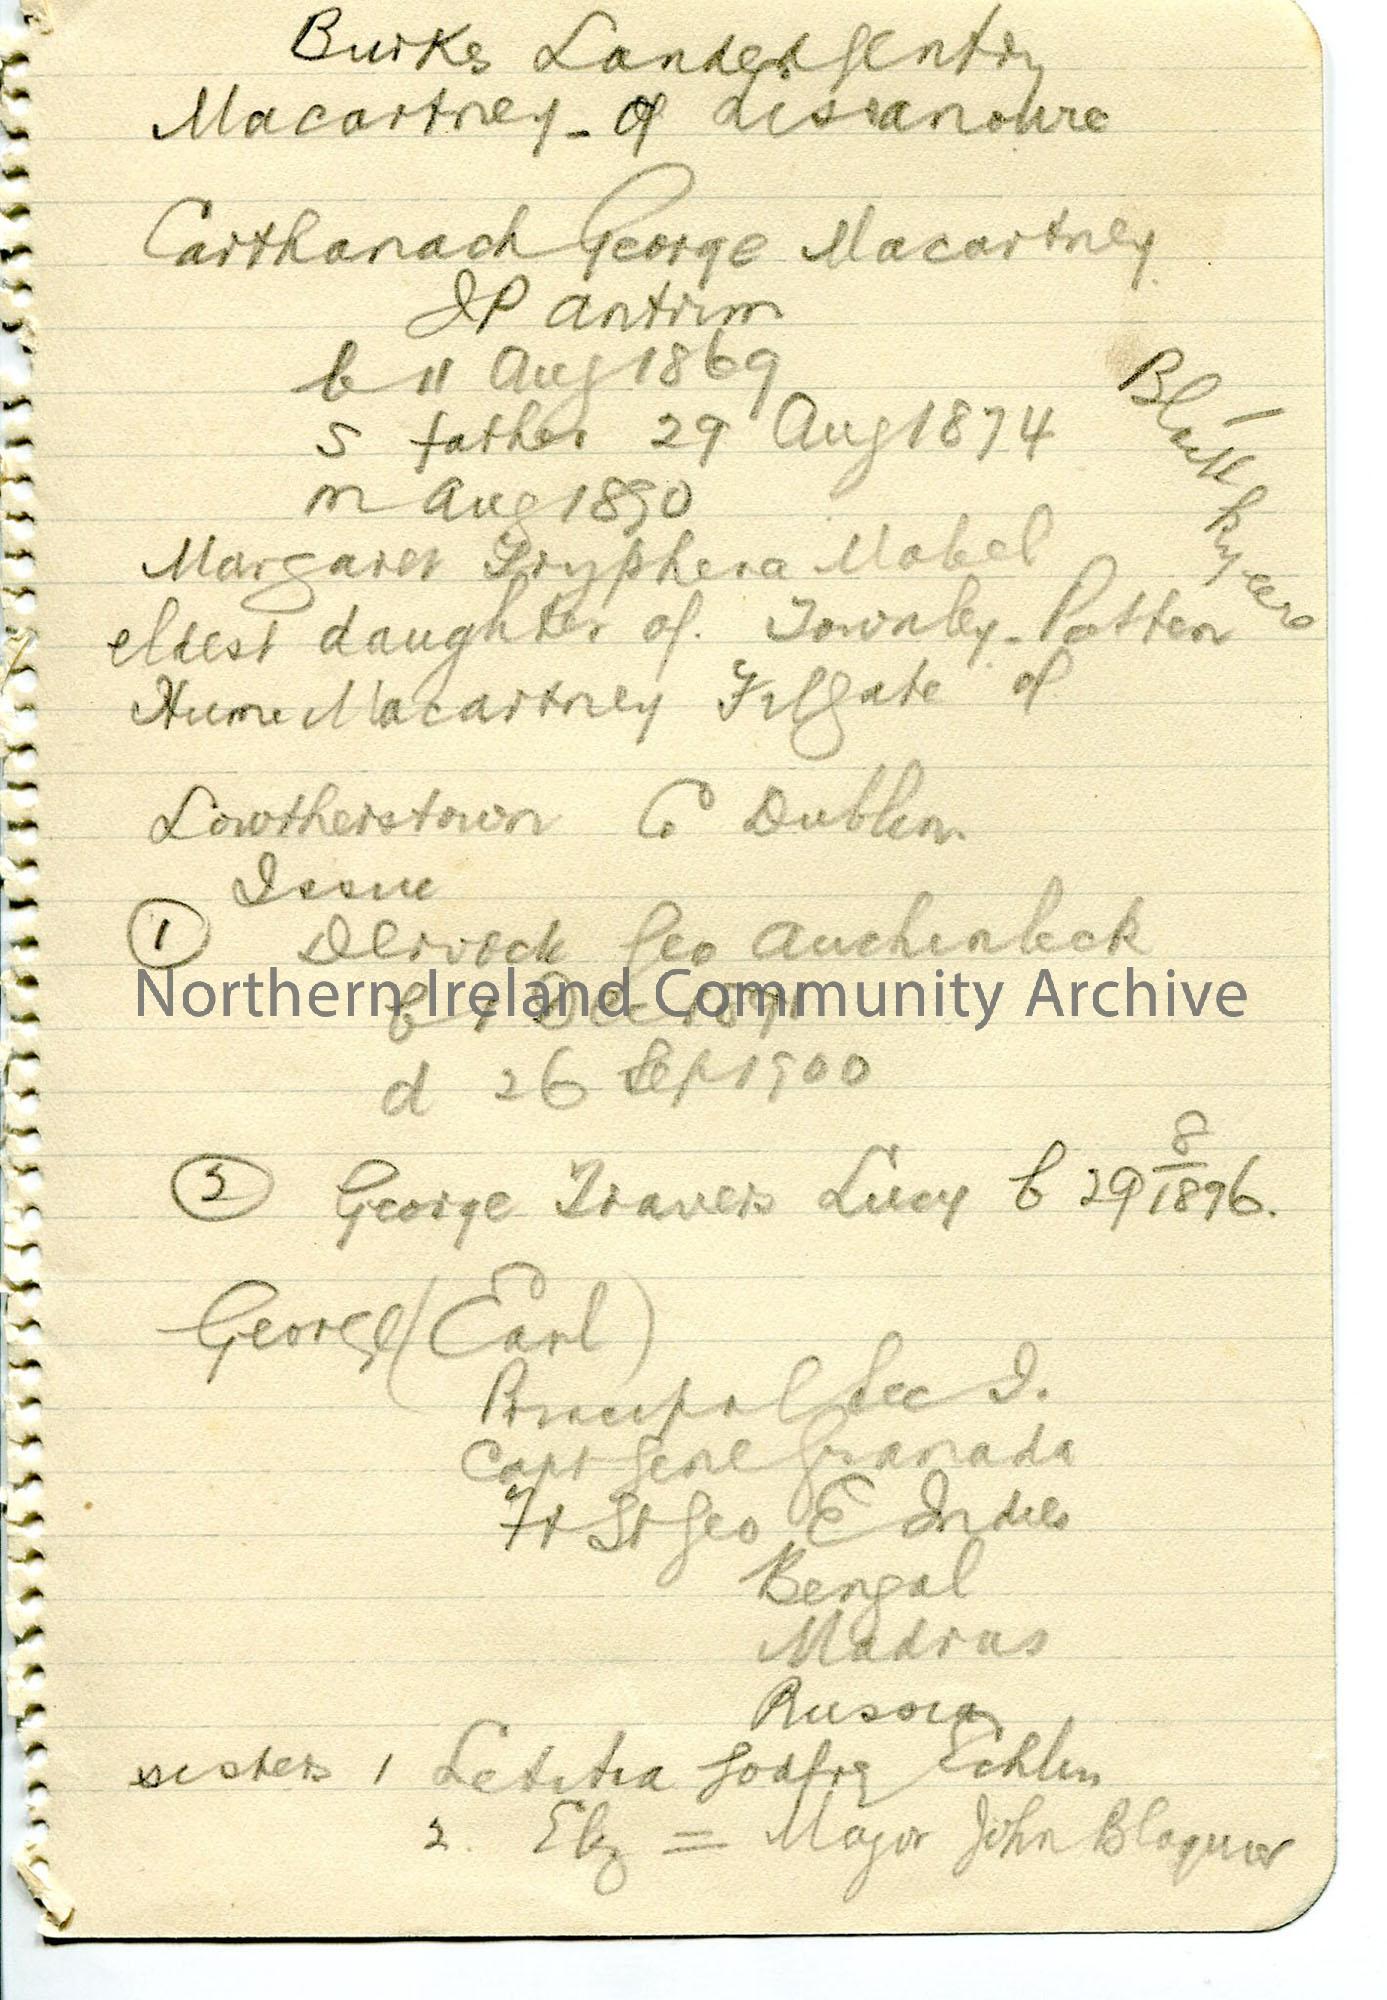 Burkes Landed Gentry
Macartney - of Lissanoure
Carthanach George Macartney
JP Antrim
b 11 Aug 1869
s father 29 Aug 1874
m Aug 1890
Margaret Tryphena Mabel
eldest daughter of Townley-Patten
Hume Macartney Filgate of
Lowtherstown Co Dublin
Issue
1 Dervock Geo Auchenleck
Northern Ireland Community Archive
b Dec 1891
d 26 Sep 1900
2 George Travers Lucy b 29 8/1896.
George (Earl)
Principal Sec I.
Capt Genl Granada
Ft St Geo E Indies
Bengal
Madras
Russia
sisters 1 Letitia Godfrey Echlin
2. Eliz = Major John Blaquier